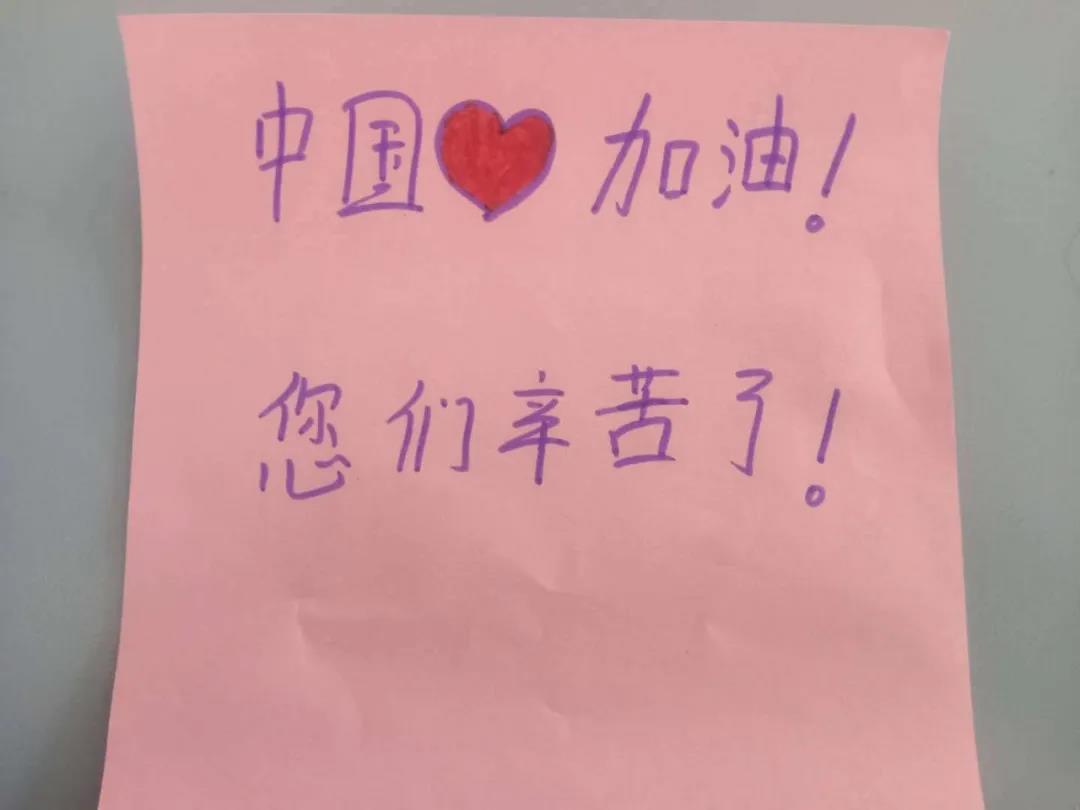 中国❤加油!
您们辛苦了!